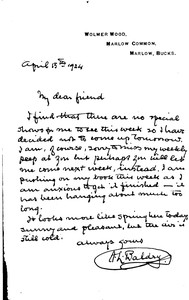 WOLMER WOOD,
MARLOW COMMON,
MARLOW, BUCKS.
April 15th 1924
My dear friend
I find that there are no special
shows for me to see this week so I have
decided not to come up tomorrow.
I am, of course, sorry to miss my weekly
peep at you but perhaps you will let
me come next week, instead. I am
pushing on my book this week as I
am anxious to get it finished — it
has been hanging about much too
long.
It looks more like spring here today
sunny and pleasant, but the air is
still cold.
Always yours
A L Baldry